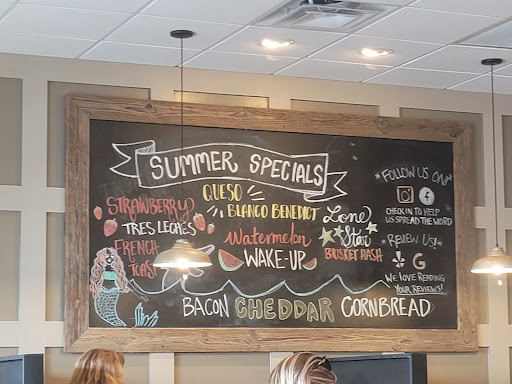 SUMMER SPECIALS
STRAWBERRY
TRES LECHES
FRENCH
TOAST
QUESO
BLANCO BENEDICT
Watermelon
WAKE-UP
Lone
Star
BRISKET HASH
BACON CHEDDAR CORNBREAD
FOLLOW US ON!
CHECK IN TO HELP
US SPREAD THE WORD
REVIEW US!
G
WE LOVE READING
YOUR REVIEWS!